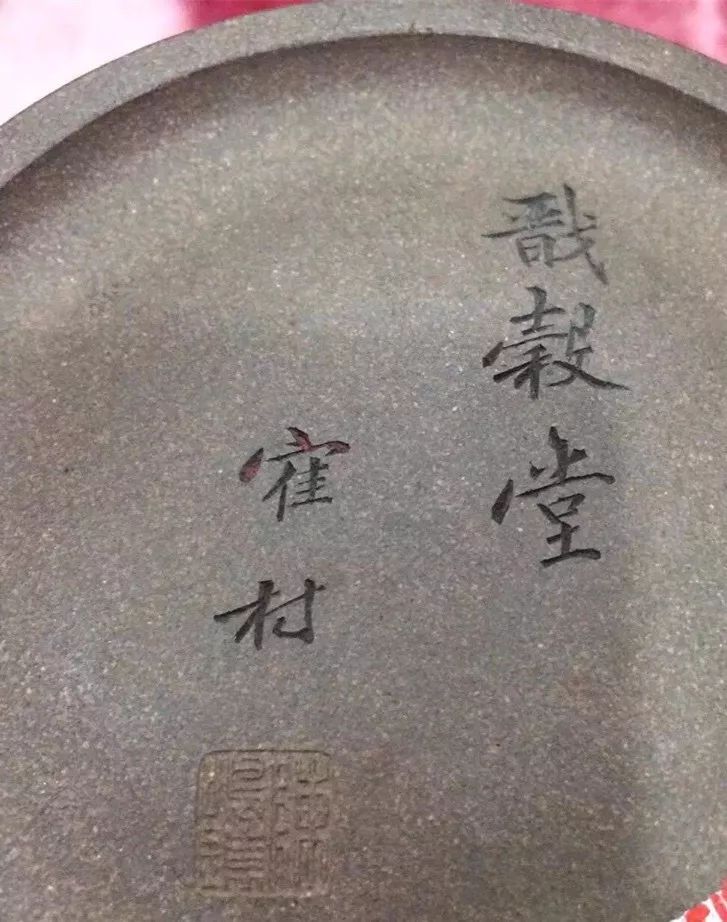 戬穀堂
寉村